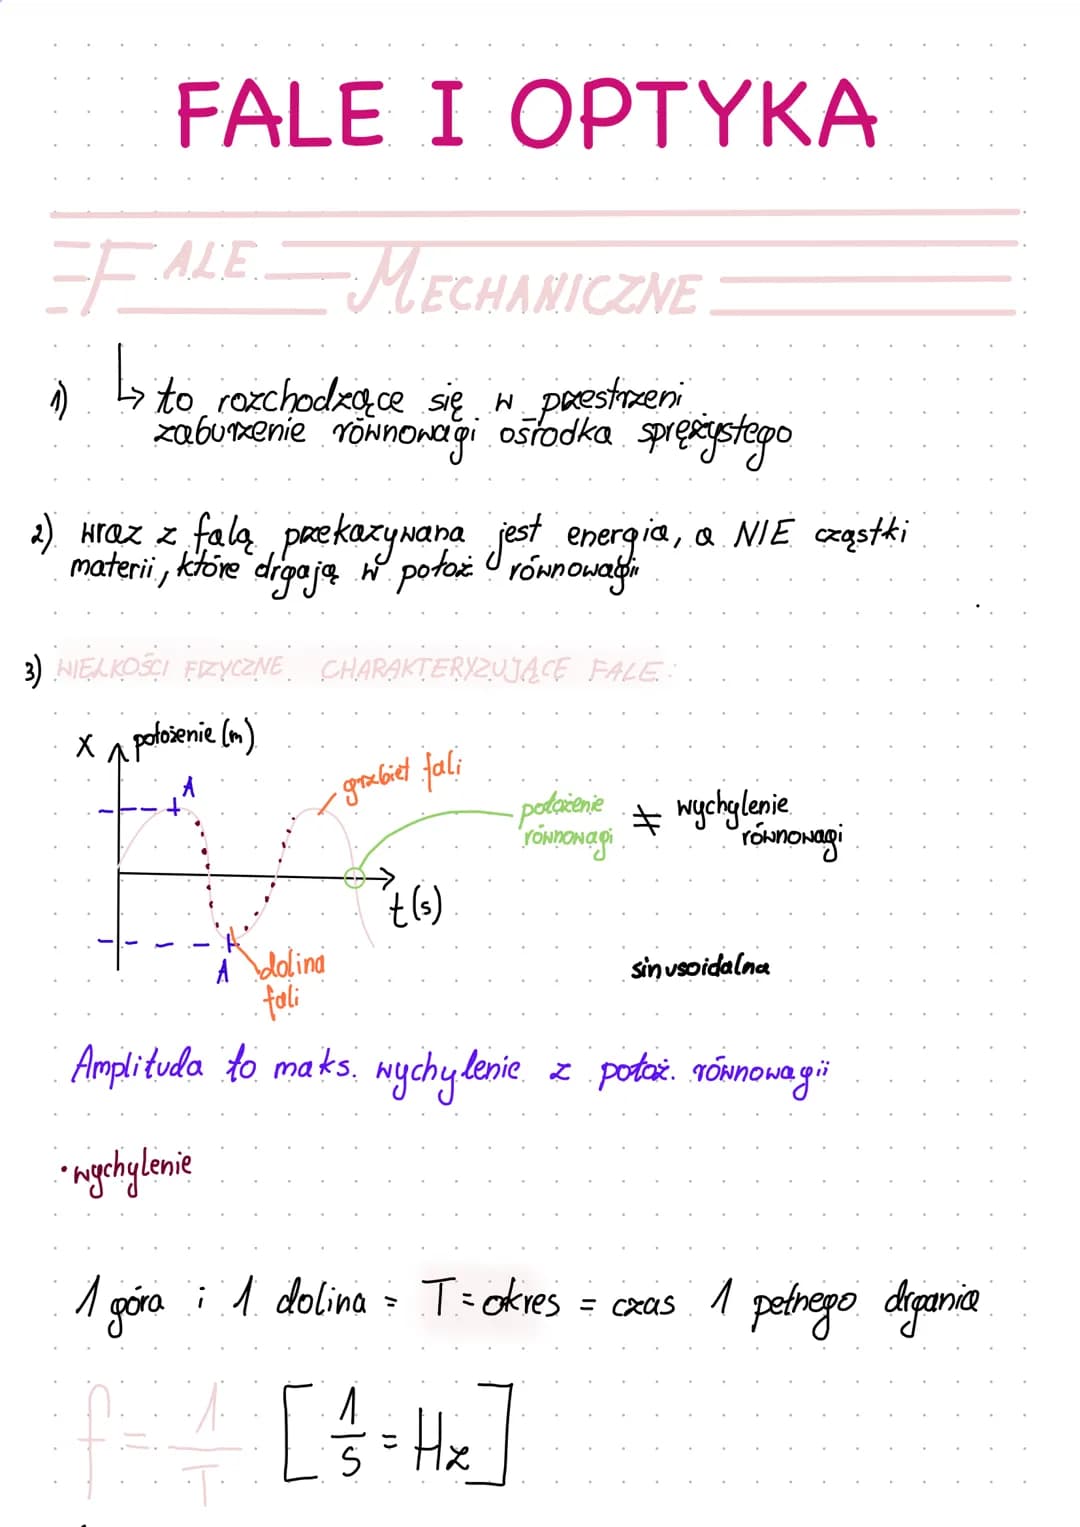 FALE I OPTYKA
FALE MECHANICZNE
1) ↳ to rozchodzące się w przestrzeni
zaburzenie równowagi ośrodka sprężystego
2) wraz z falą przekazywana jest energia, a NIE cząstki
materii, które drgają w położ równowagii
3) WIELKOŚCI FIZYCZNE CHARAKTERYZUJĄCE FALE:
X położenie (m)
A
grzbiet fali
położenie ≠ wychylenie
równowagi równowagi
t(s)
A dolina
fali
sinusoidalna
Amplituda to maks. wychylenie z położ. równowagii
• wychylenie
1 góra i 1 dolina = T = okres = czas 1 pełnego drgania
f = 1/T [1/s = Hz]